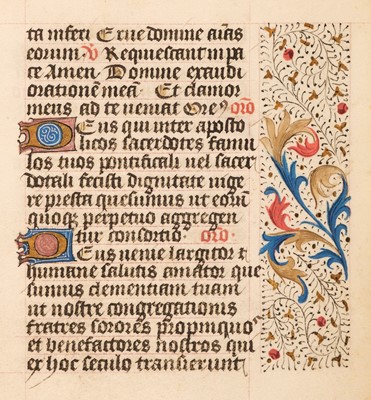 ta inferi Erue domine aīas
eorum. V Requiescant in pa
ce Amen Domine exaudi
orationem meā. Et clamor
meus ad te veniat Oreꝰ orō
Deus qui inter aposto
licos sacerdotes famu
los tuos pontificali uel sacer
dotali fecisti dignitate uige
re presta quesumus ut eorū
quoqꝫ perpetuo aggregen
tur consortio. orō
Deus uenie largitor ⁊
humane salutis amator que
sumus clementiam tuam
ut nostre congregationis
fratres sorores propinquo
et benefactores nostros qui
ex hoc seculo transierunt